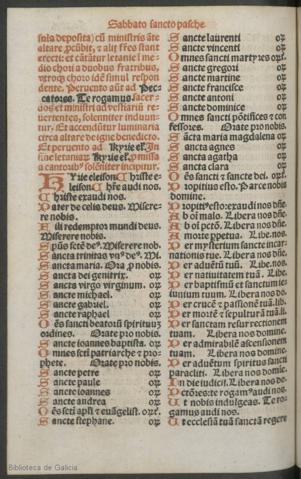 Sabbato sancto pasche
sula deposita) cū ministris āte
altare ꝓcūbit, ⁊ alij st̄es stant
erecti: et cātātur letanie ī me-
dio chori a duobus fratribus,
vtroqꝫ choro idē simul respon
dente. Peruento aūt ad Pec-
catores. Te rogamus sacer-
dos et ministri ad vestiariū re-
uertentes, solenniter induun-
tur, ⁊ accendūtur luminaria
circa altare de igne benedicto.
Et peruento ad Kyrie el'. In
fine letaniaꝝ Kyrie el'. ꝓ missa
a cantoribꝰ solēniter incipitur.
Kyrie eleison Christe e-
leison Chr̄e audi nos.
Christe exaudi nos.
Pater de celis deus. Misere-
re nobis.
Fili redemptor mundi deus
Miserere nobis.
Spūs sctē deꝰ. Miserere nob.
Sancta trinitas vnꝰ deꝰ. Mi.
Sancta maria. Ora ꝓ nobis.
Sancta dei genitrix. oꝝ
Sancta virgo virginum. oꝝ
Sancte michael. oꝝ
Sancte gabriel. oꝝ
Sancte raphael oꝝ
Oēs sancti beatoꝝ spirituum
ordines. Orate pro nobis.
Sancte ioannes baptista. oꝝ
Omnes scti patriarche ⁊ pro-
phete. Orate pro nobis.
Sancte petre oꝝ
Sancte paule oꝝ
Sancte ioannes oꝝ
Sancte andrea oꝝ
Oēs scti apli ⁊ euāgelist. oꝝ.
Sancte stephane. oꝝ
Sancte laurenti oꝝ
Sancte vincenti oꝝ
Omnes sancti martyres oꝝ.
Sancte gregori oꝝ
Sancte martine oꝝ
Sancte francisce oꝝ
Sancte antoni oꝝ
Sancte dominice oꝝ
Omnes sancti pōtifices ⁊ con
fessores. Orate pro nobis.
Sācta maria magdalena oꝝ
Sancta agnes oꝝ
Sancta agatha oꝝ
Sancta clara oꝝ
Oēs sancti ⁊ sancte dei. oꝝ.
Propitius esto. Parce nobis
domine.
Propitiꝰ esto: exaudi nos dn̄e
Ab oī malo. Libera nos dn̄e.
Ab oī pctō. Libera nos dn̄e.
A morte ppetua. Libe. nos.
Per mysterium sancte incar-
nationis tue. Libera nos dn̄e.
Per aduētū tuū. Libe. nos.
Per natiuitatem tuā. Libe.
Per baptismū et sanctum ie-
iunium tuum. Libera nos.
Per crucē ⁊ passionē tuā. lib.
Per mortē ⁊ sepulturā tuā. li.
Per sanctam resurrectionem
tuam. Libera nos domine.
Per admirabilē ascensionem
tuam. Libera nos domine.
Per aduētum spiritus sancti
paracliti. Libera nos domine.
In die iudicii. Libera nos do-
Pctōres: te rogamꝰ audi nos.
Ut nobis indulgeas. Te ro-
gamus audi nos.
Ut ecclesiā tuā sanctā regere
Biblioteca de Galicia